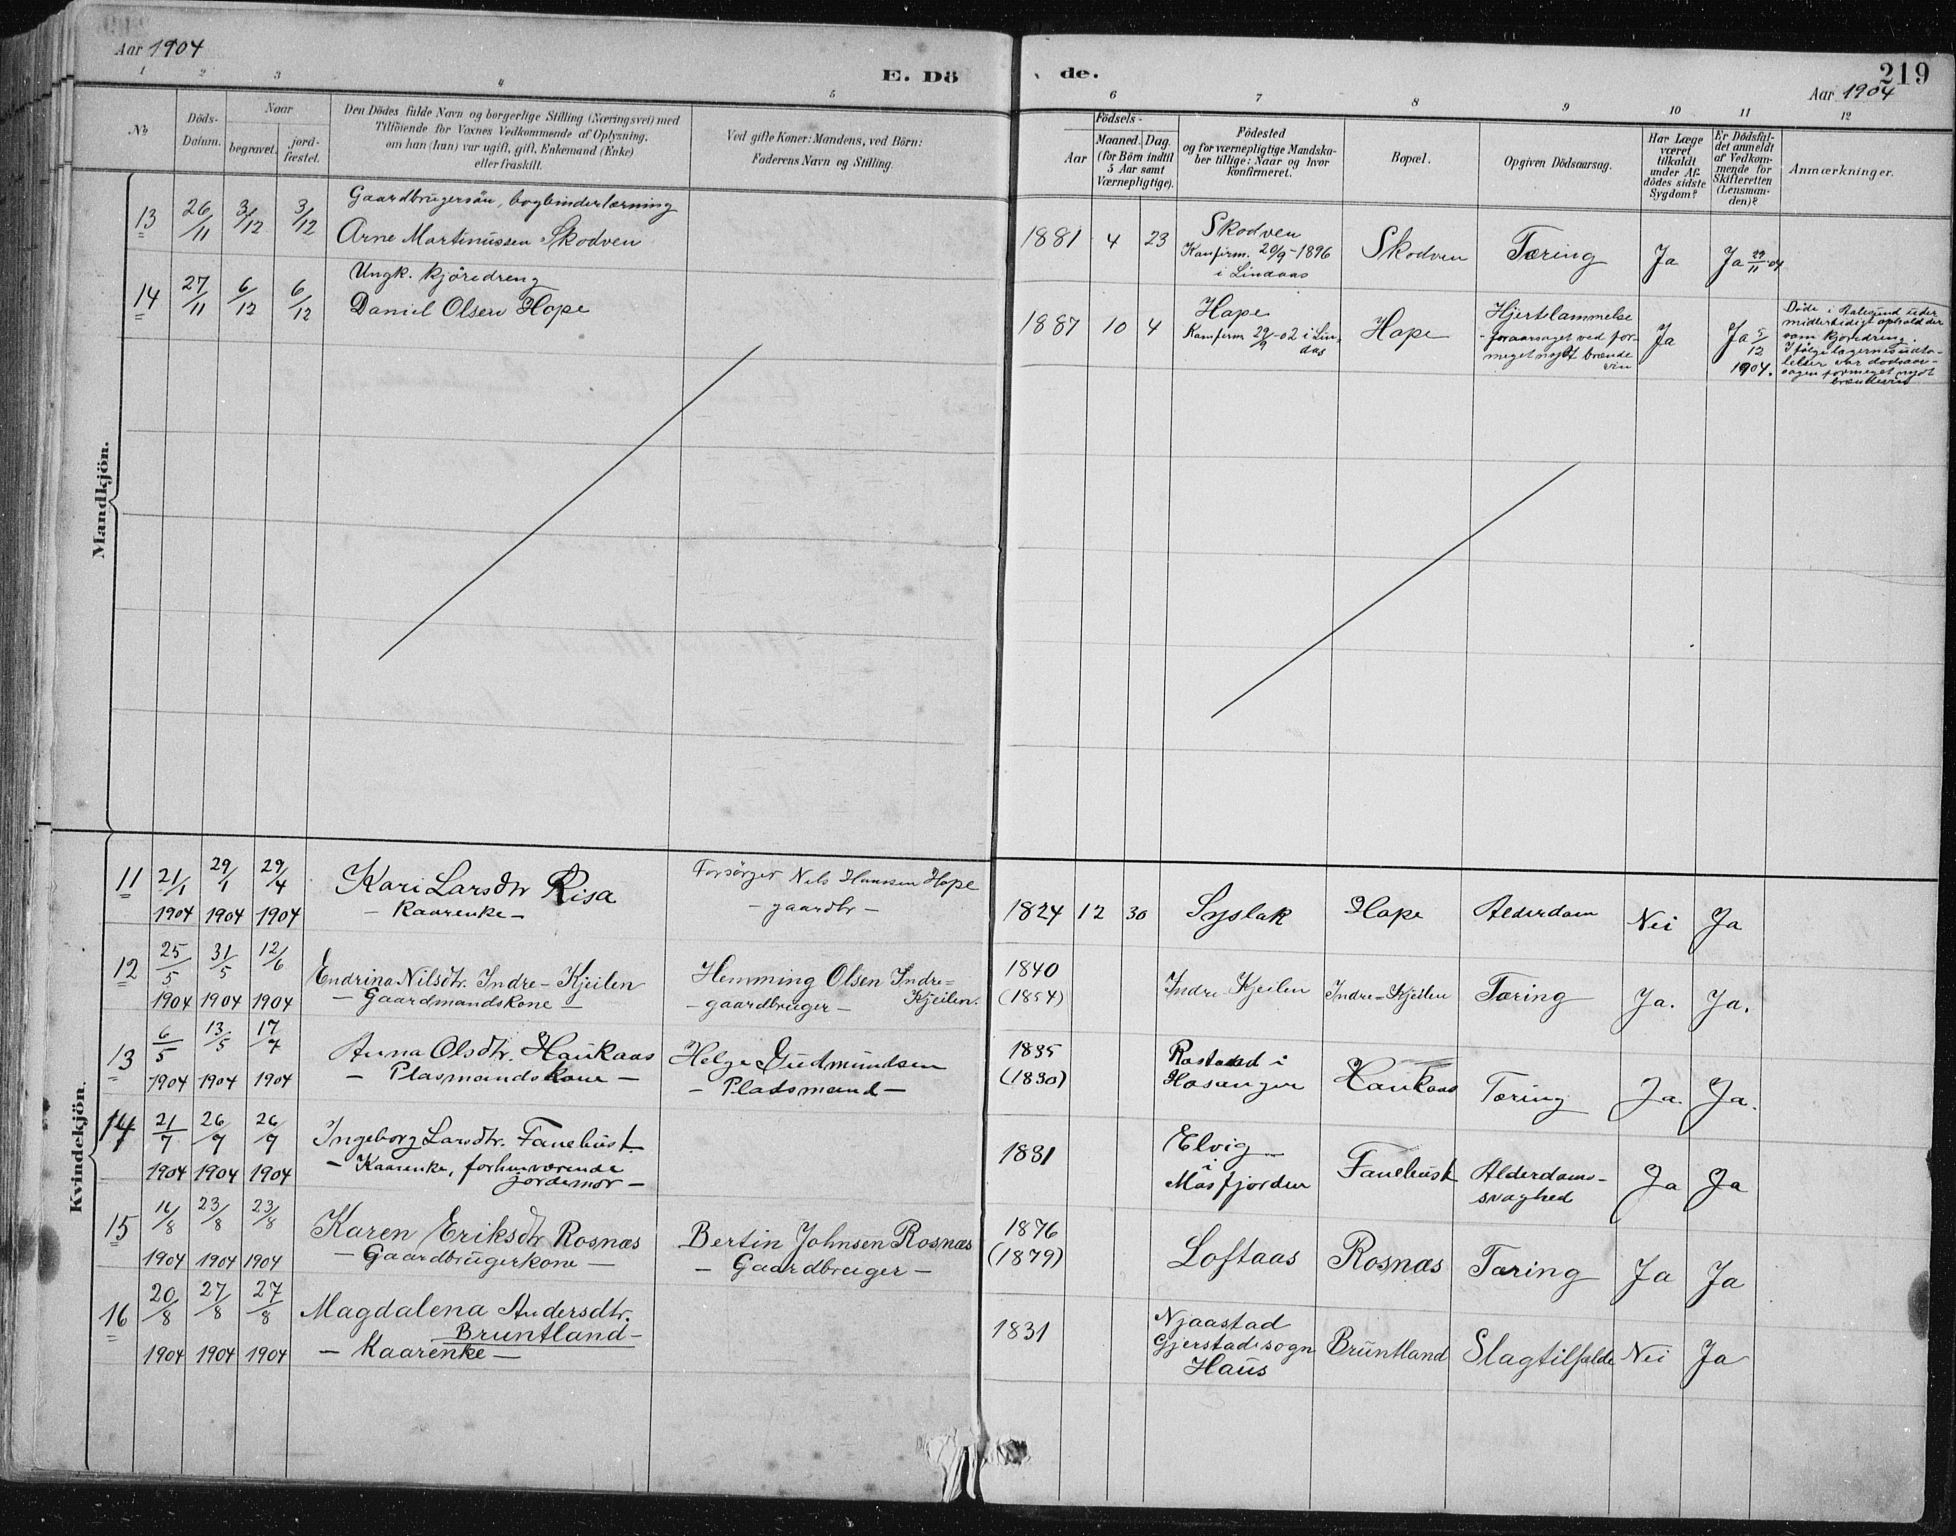 Aar 1904
E. Dö de.
219
Aar 1904
1 2 3 4 5 6 7 8 9 10 11 12
No
Döds-
Datum.
Naar
begravet.
jord-
fæstet.
Den Dödes fulde Navn og borgerlige Stilling (Næringsvei) med
Tilföiende for Voxnes Vedkommende af Oplysning,
om han (hun) var ugift, gift, Enkemand (Enke)
eller fraskilt.
Ved gifte Koner: Mandens, ved Börn:
Faderens Navn og Stilling.
Födsels-
Aar
Maaned. Dag.
(for Börn indtil
5 Aar samt
Værnepligtige).
Födested
og for værnepligtige Mandska-
ber tillige: Naar og hvor
konfirmeret.
Bopæl.
Opgiven Dödsaarsag.
Har Læge
været
tilkaldt
under Af-
dödes sidste
Sygdom?
Er Dödsfal-
det anmeldt
af Vedkom-
mende for
Skifteretten
(Lensman-
den)?
Anmærkninger.
Mandkjön.
13 26/11 3/12 3/12
Gaardbrugersön, bogbinderlærning
Arne Martinussen Skodven
1881 4 23
Skodven
Konfirm. 20/9-1896
i Lindaas
Skodven Tæring Ja Ja 29/11 04
14 27/11 6/12 6/12
Ungk. kjöredreng
Daniel Olsen Hope
1887 10 4
Hope
Konfirm 29/9-02 i Lin-
daas
Hope
Hjertelammelse
- foraarsaget ved for-
meget nydt brænde
vin
Ja
Ja 5/12
1904.
Döde i Aalesund under
midlertidigt ophold der
som kjöredreng.
Ifölge lægernes udta-
lelser var dödsaar-
sagen formeget nydt
brændevin
Kvindekjön.
11 21/1 29/1 29/4
1904 1904 1904
Kari Larsdtr Risa
- Kaarenke -
Forsörger Nils Hanssen Hope
- gaardbr -
1824 12 30 Syslak Hope Alderdom Nei Ja
12 25/5 31/5 12/6
1904 1904 1904
Endrina Nilsdtr. Indre-Kjeilen
- Gaardmandskone -
Hemming Olsen Indre-
Kjeilen.
- gaardbruger -
1840
(1854)
Indre Kjeilen Indre-Kjeilen Tæring Ja. Ja.
13 6/5 13/5 17/7
1904 1904 1904
Anna Olsdtr. Haukaas
- Plasmandskone -
Helge Gudmundsen
- Pladsmand -
1835
(1830)
Rostad i
Hosanger
Haukaas Tæring Ja. Ja.
14 21/7 26/7 26/7
1904 1904 1904
Ingeborg Larsdtr. Fanehust
- Kaarenke, forhenværende
jordemor -
1831
Elvig
i
Masfjorden
Fanehust
Alderdoms-
svaghed
Ja Ja
15 16/8 23/8 23/8
1904 1904 1904
Karen Eriksdtr Rosnæs
- Gaardbrugerkone -
Bertin Johnsen Rosnæs
- Gaardbruger -
1876
(1879)
Loftaas Rosnæs Tæring Ja Ja
16 20/8 27/8 27/8
1904 1904 1904
Magdalena Andersdtr.
Bruntland -
- Kaarenke -
1831
Njaastad
Gjerstad sogn
Haus
Bruntland Slagtilfælde Nei Ja